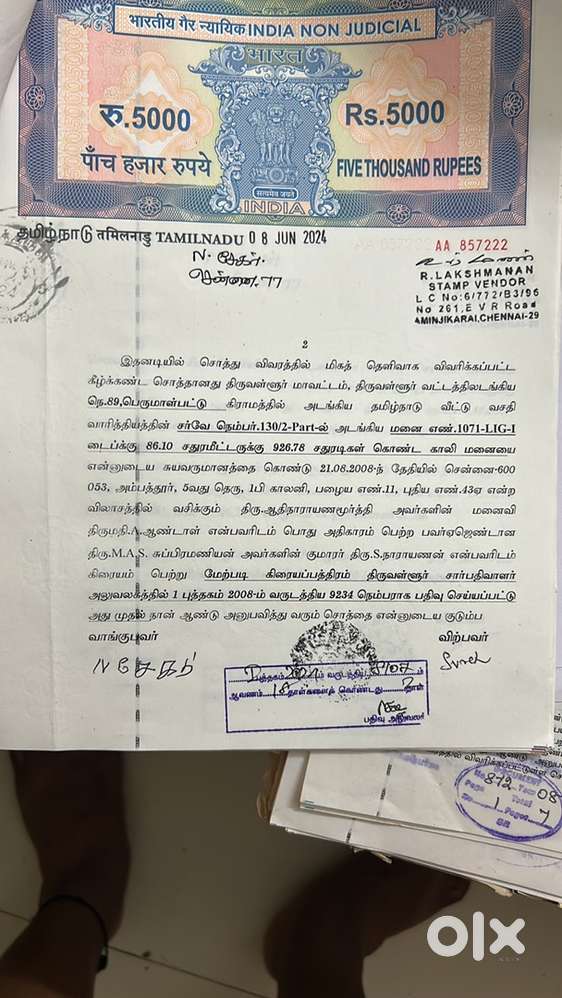 भारतीय गैर न्यायिक INDIA NON JUDICIAL
भारत
रु.5000
Rs.5000
पाँच हजार रुपये
FIVE THOUSAND RUPEES
सत्यमेव जयते
INDIA
தமிழ்நாடு तमिलनाडु TAMILNADU 08 JUN 2024
AA 857222
N. சேகர்.
சென்னை.77
R. LAKSHMANAN
STAMP VENDOR
L C No:6/772/B3/96
No 261, E V R Road
AMINJIKARAI, CHENNAI-29
2
இதனடியில் சொத்து விவரத்தில் மிகத் தெளிவாக விவரிக்கப்பட்ட
கீழ்க்கண்ட சொத்தானது திருவள்ளூர் மாவட்டம், திருவள்ளூர் வட்டத்திலடங்கிய
நெ.89,பெருமாள்பட்டு கிராமத்தில் அடங்கிய தமிழ்நாடு வீட்டு வசதி
வாரித்தியத்தின் சர்வே நெம்பர்.130/2-Part-ல் அடங்கிய மனை எண்.1071-LIG-I
டைப்க்கு 86.10 சதுரமீட்டருக்கு 926.78 சதுரடிகள் கொண்ட காலி மனையை
என்னுடைய சுயவருமானத்தை கொண்டு 21.08.2008-ந் தேதியில் சென்னை-600
053, அம்பத்தூர், 5வது தெரு, 1பி காலனி, பழைய எண்.11, புதிய எண்.43ஏ என்ற
விலாசத்தில் வசிக்கும் திரு.ஆதிநாராயணமூர்த்தி அவர்களின் மனைவி
திருமதி.A.ஆண்டாள் என்பவரிடம் பொது அதிகாரம் பெற்ற பவர்ஏஜெண்டான
திரு.M.A.S. சுப்பிரமணியன் அவர்களின் குமாரர் திரு.S.நாராயணன் என்பவரிடம்
கிரையம் பெற்று மேற்படி கிரையப்பத்திரம் திருவள்ளூர் சார்பதிவாளர்
அலுவலகத்தில் 1 புத்தகம் 2008-ம் வருடத்திய 9234 நெம்பராக பதிவு செய்யப்பட்டு
அது முதல் நான் ஆண்டு அனுபவித்து வரும் சொத்தை என்னுடைய குடும்ப
வாங்குபவர்
விற்பவர்
N சேகர்
Suresh
புத்தகம் 2024ம் வருடத்திய
ஆவணம் 18 தாள்களைக் கொண்டது 2 தாள்
பதிவு அலுவலர்
DOCUMENT
No 872 Year 08
Page 1 Total Pages 7
SR
olx